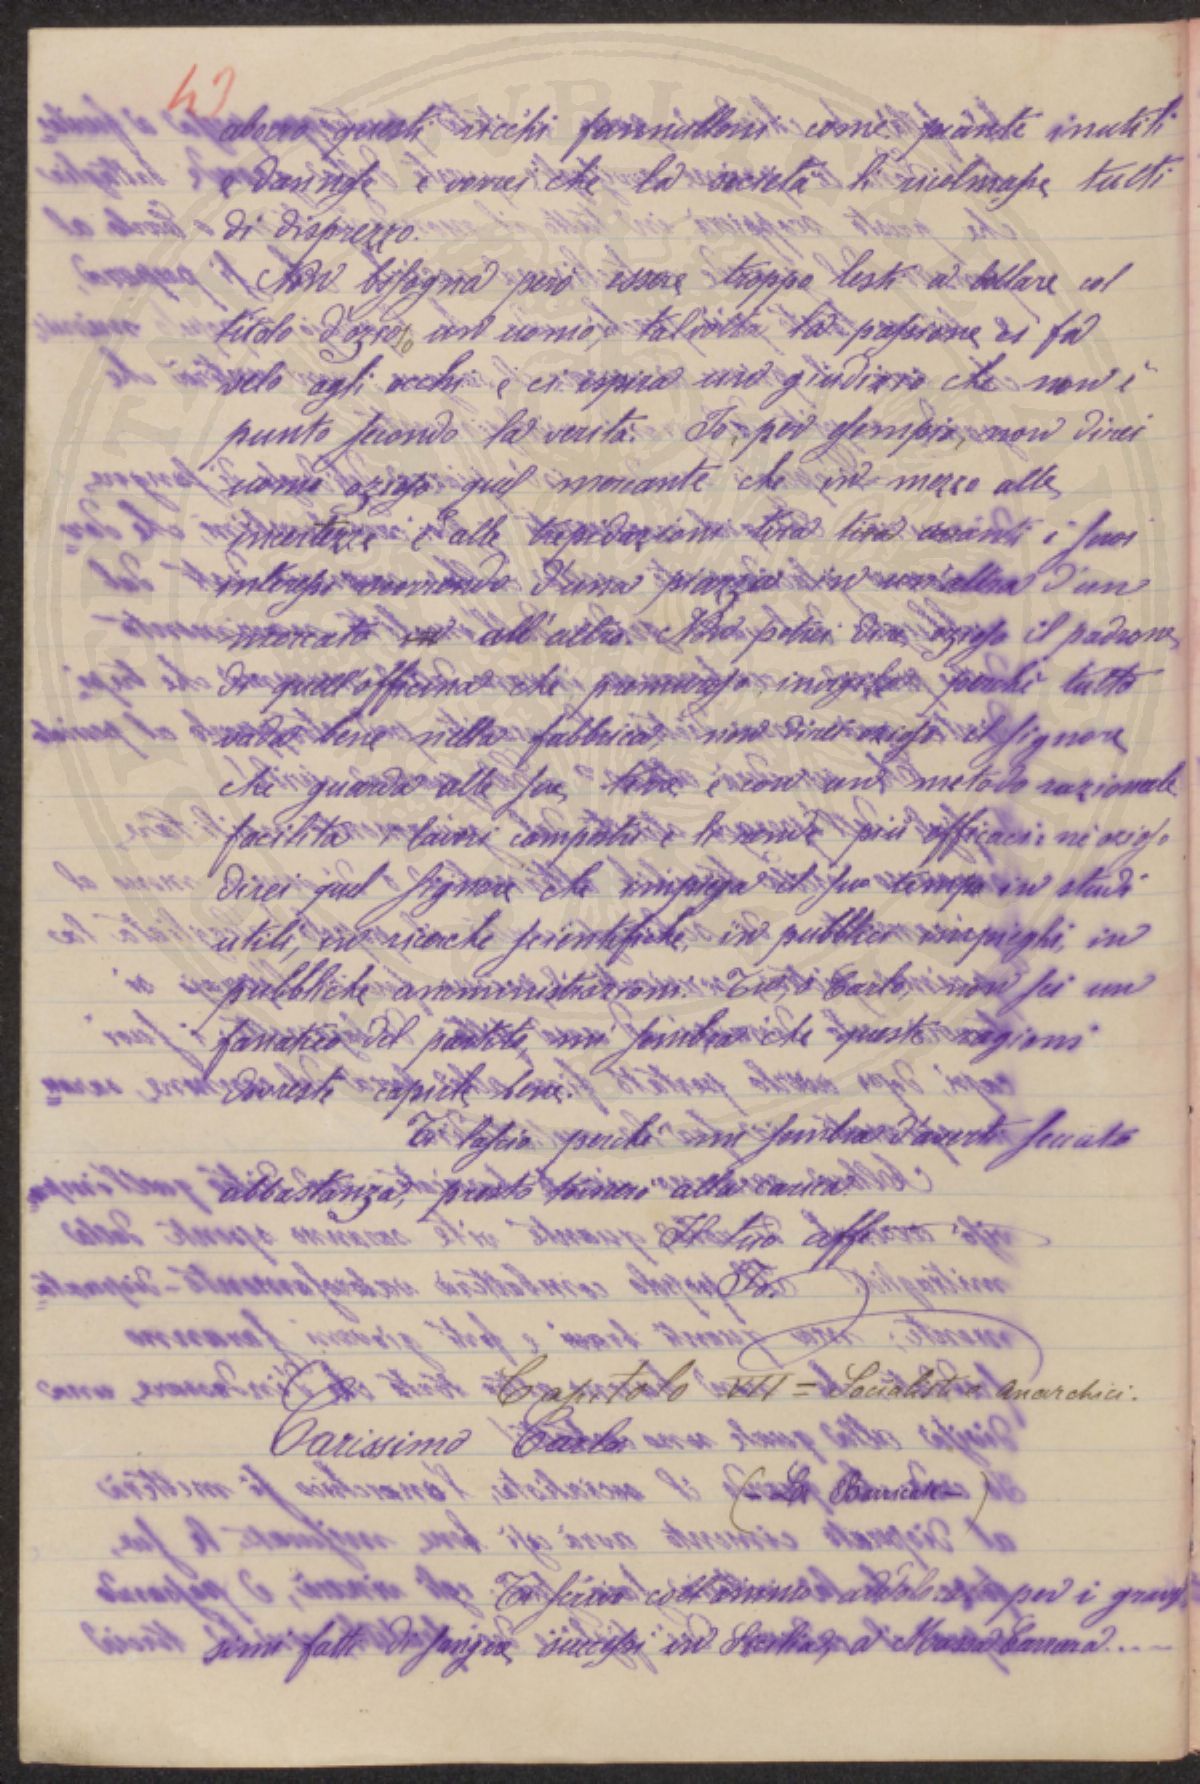 43
aborro questi ricchi fannulloni come piante inutili
e dannose e vorrei che la società li ricolmasse tutti
di disprezzo.
Non bisogna però essere troppo lesti a bollare col
titolo d'ozioso un uomo, talvolta la passione ci fa
velo agli occhi e ci ispira un giudizio che non è
punto secondo la verità. Io, per esempio, non direi
uomo ozioso quel mercante che in mezzo alle
incertezze e alle trepidazioni tira tira avanti i suoi
interessi correndo d'una piazza in un'altra d'un
mercato all'altro. Non potrei dire ozioso il padrone
di quell'officina che premuroso invigila perchè tutto
vada bene nella fabbrica, non direi ozioso il signore
che guarda alle sue terre e con un metodo razionale
facilita i lavori campestri e li rende più efficaci: nè ozioso
direi quel signore che impiega il suo tempo in studi
utili, in ricerche scientifiche, in pubblici impieghi, in
pubbliche amministrazioni. Tu, o Carlo, non sei un
fanatico del partito, mi sembra che queste ragioni
dovresti capirle bene.
Ti lascio perchè mi sembra d'averti seccato
abbastanza, presto tornerò alla carica.
Il tuo aff
Capitolo VII = Socialisti o Anarchici.
Carissimo Carlo
(- Le Barricate -)
Ti scrivo coll'animo addolorato per i gravis
simi fatti di sangue successi in Sicilia, a Massa Carrara....